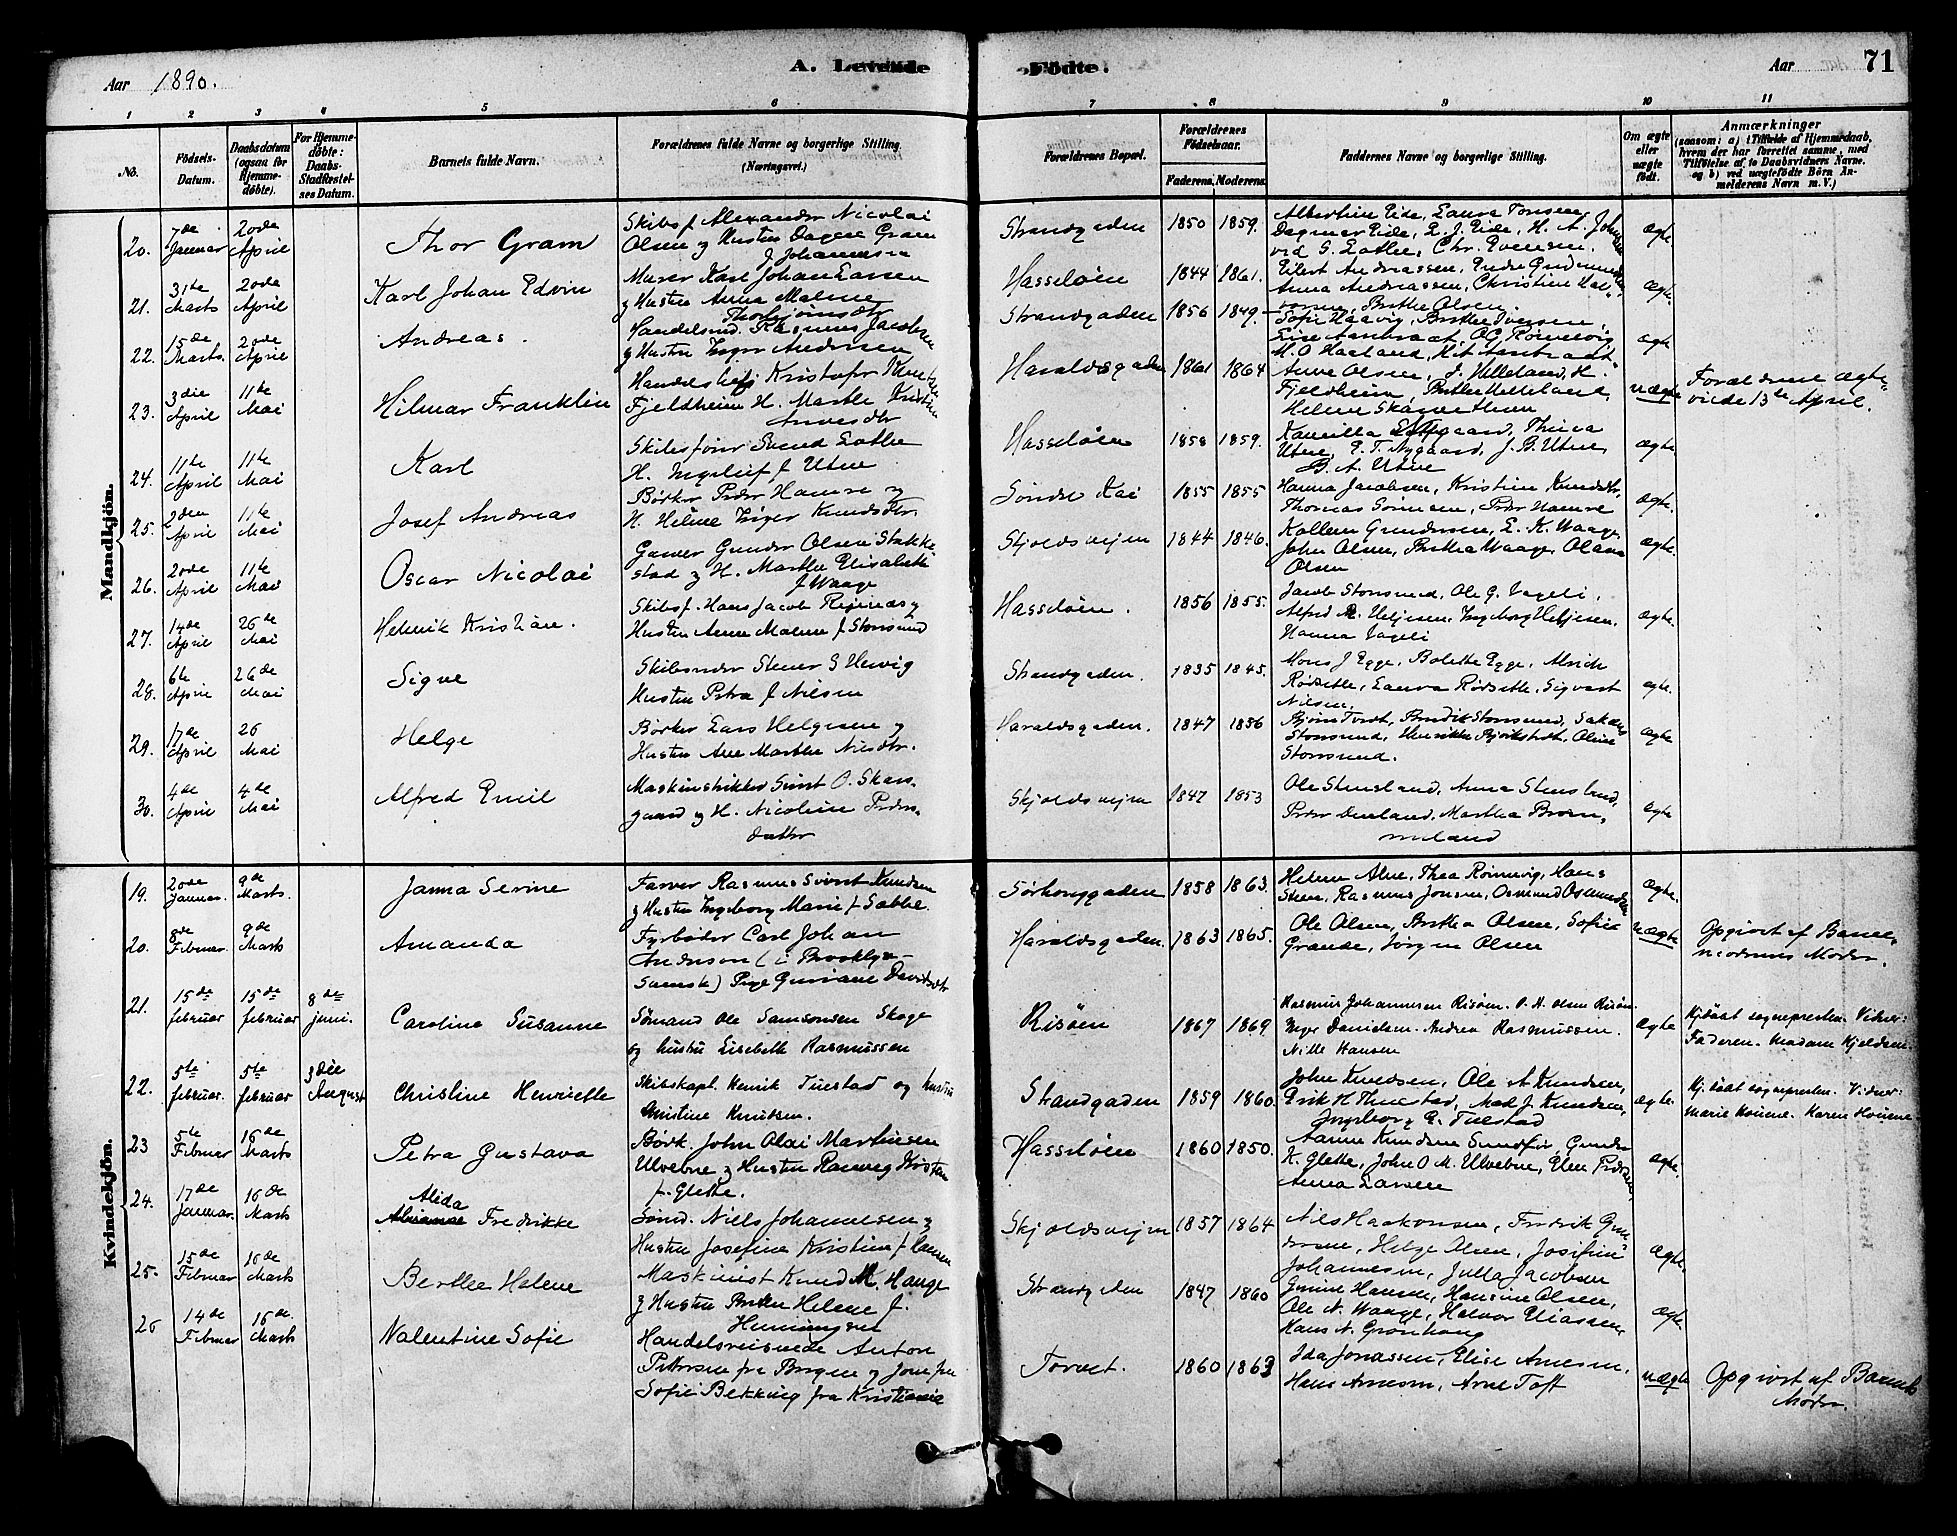 Aar 1890.
A. Levende Fødte.
Aar
71
1 2 3 4 5 6 7 8 9 10 11
No.
Fødsels-Datum.
Daabsdatum (ogsaa for Hjemmedøbte).
For Hjemmedøbte: Daabs Stadfæstelses Datum.
Barnets fulde Navn.
Forældrenes fulde Navne og borgerlige Stilling. (Næringsvei.)
Forældrenes Bopæl.
Forældrenes Fødselsaar.
Faderens. Moderens.
Faddernes Navne og borgerlige Stilling.
Om ægte eller uægte født.
Anmærkninger
(saasom: a) i Tilfælde af Hjemmedaab, hvem der har forrettet samme, med Tilføielse af to Daabsvidners Navne. og b) ved uægtefødte Børn Anmelderens Navn m. V.)
Mandkjøn.
20. 7de Januar 20de April Thor Gram Skibsf Alexander Nicolai Olsen Strandgaden 1850 1859. Albertine Eide, Laura Tonsen Dagmar Eide, L. J. Eide, H. A. ægte
21. 31te Marts 20de April Karl Johan Edvin Murer Karl Johan Larsen og Hustru Anna Malene Hasseløen 1844 1861. Eilert Andreassen, Anna Andreassen, Christine ægte.
22. 15de Marts. 20de April Andreas. Rasmus Jacobsen og Hustru Inger Andersen Strandgaden 1856 1849. ægte
23. 3die April 11te Mai Hilmar Franklin Kristofer Fjeldheim H. Marthe Haraldsgaden 1861 1864 Anne Olsen, J. Helleland, H. Fjeldheim, Helene uægte Forældrene ægteviede 13de April.
24. 11te April 11te Mai Karl Skibsfører Svend Lothe H. Ingeleif f Utne Hasseløen 1858 1859. Kamilla Thina Utne, E. T. Nygaard, J. B. Utne, B. A. Utne ægte
25. 2den April 11te Mai Josef Andreas Bødker Peder Hamre og H. Helene Inger Knudsdtr. Søndre Kai 1855 1855 Hanna Jacobsen, Kristine Knudsdtr, Thomas Sørensen, Peder Hamre ægte.
26. 20de April 11te Mai Oscar Nicolai Garver Gunder Olsen Stakkestad og H. Marthe Elisabeth f Waage Skjoldsvejen 1844 1846. Gundersen, E. K. Waage, John Olsen, Berthea Waage, Olava Olsen ægte.
27. 14de April 26de Mai Henrik Kristian. Skibsf. Hans Jacob og Hustru Anne Malene f. Storesund Hasseløen. 1856 1855. Jacob Storesund, Ole G. Vageli, Alfred M. Ingeborg Hanna Vageli ægte.
28. 6te April 26de Mai Signe Hustru Petra f Nilsen Strandgaden. 1835 1845. Mons J Egge, Bolette Egge, Alrich Rødsethe, Laura Rødsethe, Sigvart Nilsen. ægte.
29. 17de April 26 Mai Helge Bødker Lars Helgesen og Hustru Ane Marthe Nilsdtr. Haraldsgaden. 1847 1856 Storesund, Henrikke Oline Storesund. ægte
30. 4de April 4de Mai Alfred Emil O. Skarsgaard og H. Nicoline Pedersdatter Skjoldsvejen 1847 1853 Ole Stensland, Anna Stensland, Peder Martha ægte
Kvindekjøn.
19. 20de Januar. 9de Marts. Janna Serine Farver Rasmus Sivert Knudsen og Hustru Ingeborg Marie f. Sørhauggaden 1858 1863. Helene Alne, Thea Rønnevig, Hans Steen, Rasmus Jonsen, Osmund Osmundsen ægte.
20. 8de Februar. 9de Marts Amanda Fyrbøder Carl Johan Anderson (i Brooklyn - Svensk) Pige Guriane Davidsdtr Haraldsgaden. 1863 1865. Ole Olsen, Berthea Olsen, Sofie Grande, Jørgen Olsen uægte Opgivet af Barnemoderens Moder.
21. 15de februar 15de februar 8de juni. Caroline Susanne Sømand Ole Samsonsen Skoge og hustru Lisebeth Rasmussen Risøen 1867 1869 Rasmus Johannesen Risøen. O. H. Olsen Risøen Inger Danielsen. Andrea Rasmussen. Nille Hansen ægte Hj.døbt sognepresten. Vidner: Faderen. Madam Kjeldsen
22. 5te februar. 5te februar 3die August Christine Henriette Skibskapt. Henrik Tuestad og hustru Christine Knudsen. Strandgaden 1859 1860 John Knudsen, Ole A Knudsen, Erik H Thuestad, Mad J. Knudsen, Ingeborg E. Tuestad ægte. Hj. døbt sognepresten. Vidner: Marie Houene. Karen Houene
23 5te Februar 16de Marts Petra Gustava Børk. John Olai Martinsen Ulvebne og Hustru Ranveig Kristen f. Glette. Hasseløen 1860 1850. Knudsen Sundfør, Gunder K. Glette, John O M. Ulvebne, Elen Anna Larsen ægte.
24. 17de Januar. 16de Marts Alida Fredrikke Sømd. Niels Johannesen og Hustru Josefine Kristine f Hansen Skjoldsvejen 1857 1864 Nils Haakonsen, Fredrik Gundersen, Helge Olsen, Josefine Johannesen, Julla Jacobsen ægte.
25. 15de Februar 16de Marts Berthe Helene Maskinist Knud M. Hauge og Hustru Berthe Helene f. Henningsen Strandgaden 1847 1860 Hansen, Hansine Olsen, Ole N. Waage, Halvor Eliassen, Hans N. Grønhaug ægte
26 14de Februar 16de Marts Valentine Sofie Handelsreisende Anton Pettersen fra Bergen og Sofie Bekking fra Kristiania Torvet. 1860 1863 Ida Jonassen, Elise Arnesen, Hans Arnesen, Arne Toft uægte Opgivet af Barnets Moder.